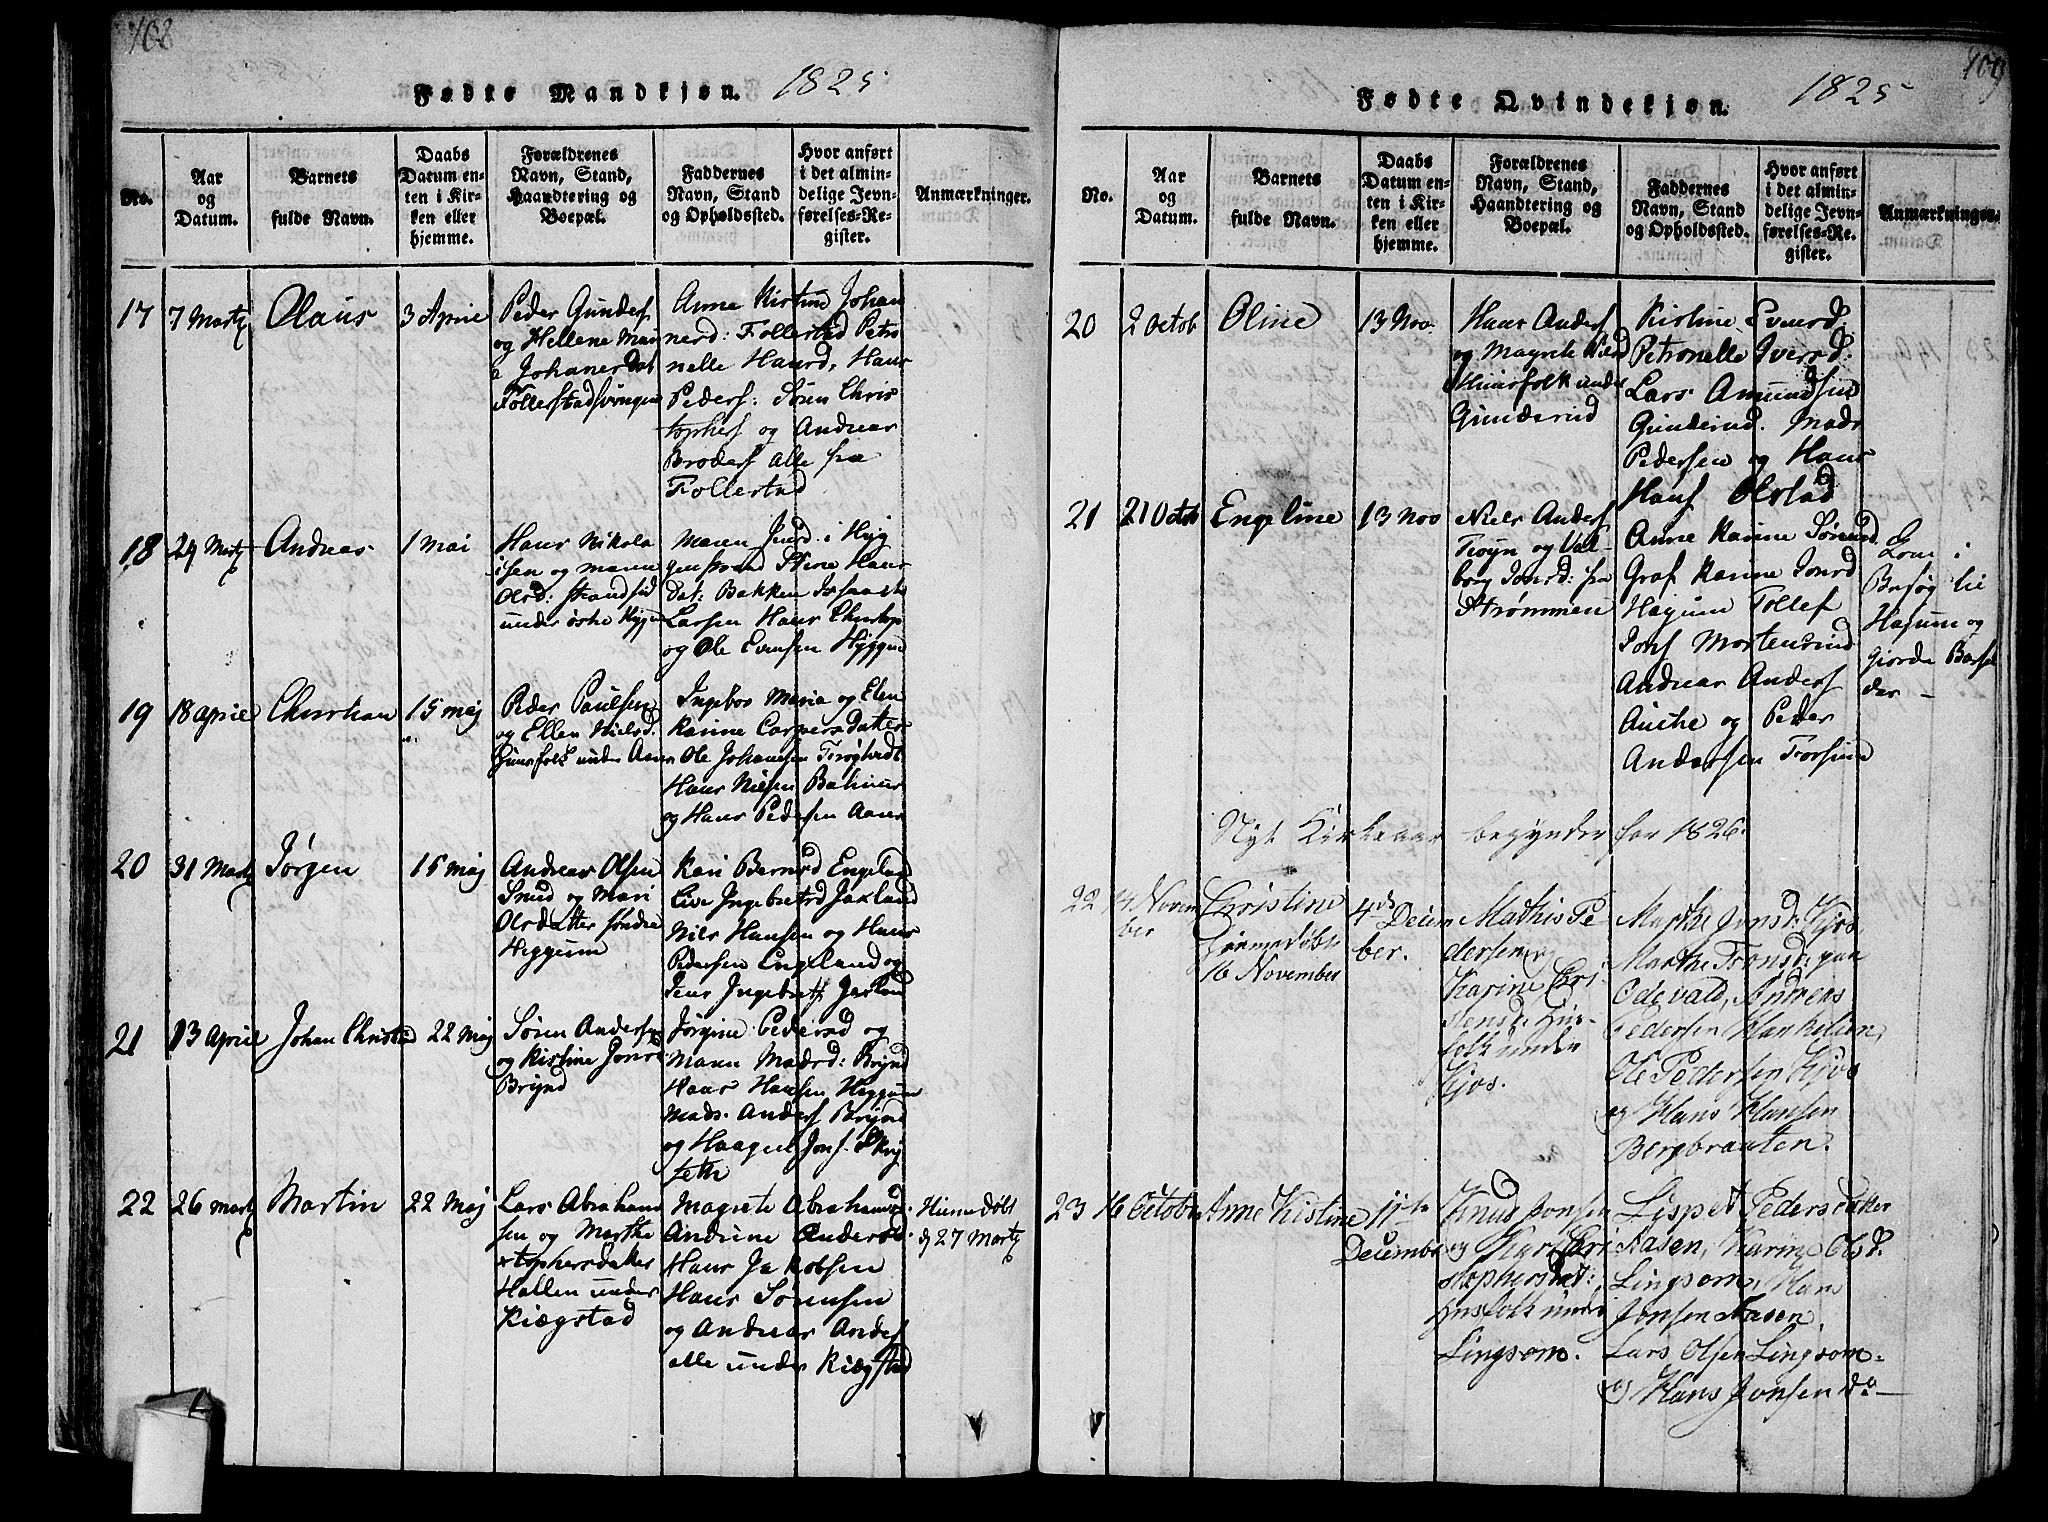 108
Fødte Mandkjøn. 1825
No.
Aar
og
Datum.
Barnets
fulde Navn.
Daabs
Datum en-
ten i Kir-
ken eller
hjemme.
Forældrenes
Navn, Stand,
Haandtering og
Boepæl.
Faddernes
Navn, Stand
og Opholdssted.
Hvor anført
i det almin-
delige Jevn-
førelses-Re-
gister.
Anmærkninger.
17
7 Martz
Olaus
3 Aprile
Peder Gunders
og Hellene Mari
a Johaner Dat
Follerstadsvingen
Anne Kirstine Johan
nerd: Follerstad Petro
nelle Hansd, Hans
Peders: Søren Chris
tophers og Andreas
Broders alle fra
Follestad
18
24 Martz
Andreas
1 Mai
Hans Nikola
isen og Maren
Olsd:
under østre Hyggen
Maren
Stine Hans
Dat: Bakken
Larsen Hans Christop
og Ole Evensen Hyggen
19
18 aprile
Christian
15 Maj
Peder Paulsen
og Ellen Nielsd.
Huusfolk under Aaser
Ingebor Maria og Elen
Karine Caspers Datter
Ole Johansen
Hans Nilsen
og Hans Pedersen Aaser
20
31 Martz
Jørgen
15 Maj
Andreas Olsen
og Mari
Olsdatter søndre
Heggum
Kari Bernsd Engeland
Live Ingebretsd Jaxland
Nils Hansen og Hans
Pedersen Engeland og
Jens Ingebrets Jaxland
21
13 Aprile
Johan Christian
22 Maj
Søren Andersen
og Kirstine Jonsd
Brynd
Jørgine Pedersd og
Maren Madsd: Brynd
Hans Hansen Heggum
Mads Anders Brynd
og Haagen Jons
22
26 Martz
Martin
22 Maj
Lars Abraham
sen og Marthe
topherdatter
Hallen under
Kiøgstad
Magrete Abrahamsd
Andrine Andersd.
Hans Jakobsen
Hans Sørensen
og Andreas Anders
alle under Kiøgstad
Hiemedøbt
d 27 Martz
109
Fødte Qvindekjøn. 1825
No.
Aar
og
Datum.
Barnets
fulde Navn.
Daabs
Datum en-
ten i Kir-
ken eller
hjemme.
Forældrenes
Navn, Stand,
Haandtering og
Boepæl.
Faddernes
Navn, Stand
og Opholdssted.
Hvor anført
i det almin-
delige Jevn-
førelses-Re-
gister.
Anmærkninger.
20
2 Octob
Oline
13 Nov.
Hans Anders
og Magrete Nilsd
Huusfolk under
Gunderud
Kirstine Evensd.
Petronelle Iversd:
Lars Amundsen
Gunderud. Mads
Pedersen og Hans
Hans Olstad
21
21 Octob
Engeline
13 Nov
Niels Anders
og Val-
borg Jonsd: fra
Strømmen
Anne Karine Sørensd
Graf Karine Jonsd
Hagum Tollef
Jons Mortensrud
Andreas Anders
og Peder
Andersen
i
Besøg til
Hagum og
giorde Barsel
der –
Nyt Kirkeaar begynder for 1826.
22
14 Novem
ber
Christine
Hjemmedøbt
16 November
4de Decem
ber.
Mathis Pe
dersen og
Karine Chri-
stensd. Hus-
folk under
Kjos.
Marthe Jonsd: Kjos,
Marthe Tronsd: paa
Odevald, Andreas
Pedersen
Ole Pedersen Kjos
og Hans Hansen
Bergbraaten.
23
16 October
Anne Kistine
11te
December
Knud Jonsen
og Kari Chri
stophersdat:
Husfolk under
Lingsom.
Lispet Pedersdatter
Aasen, Karine Olsd.
Lingsom, Hans
Jonsen Aasen,
Lars Olsen Lingsom
og Hans Jonsen do –